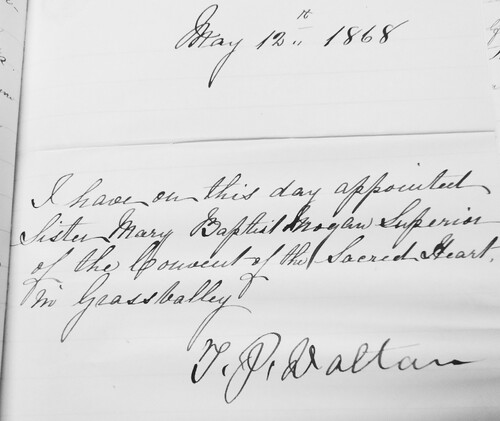 May 12th 1868
I have on this day appointed
Sister Mary Baptist Mogan Superior
of the Convent of the Sacred Heart,
in Grassvalley
T. P. Daltan